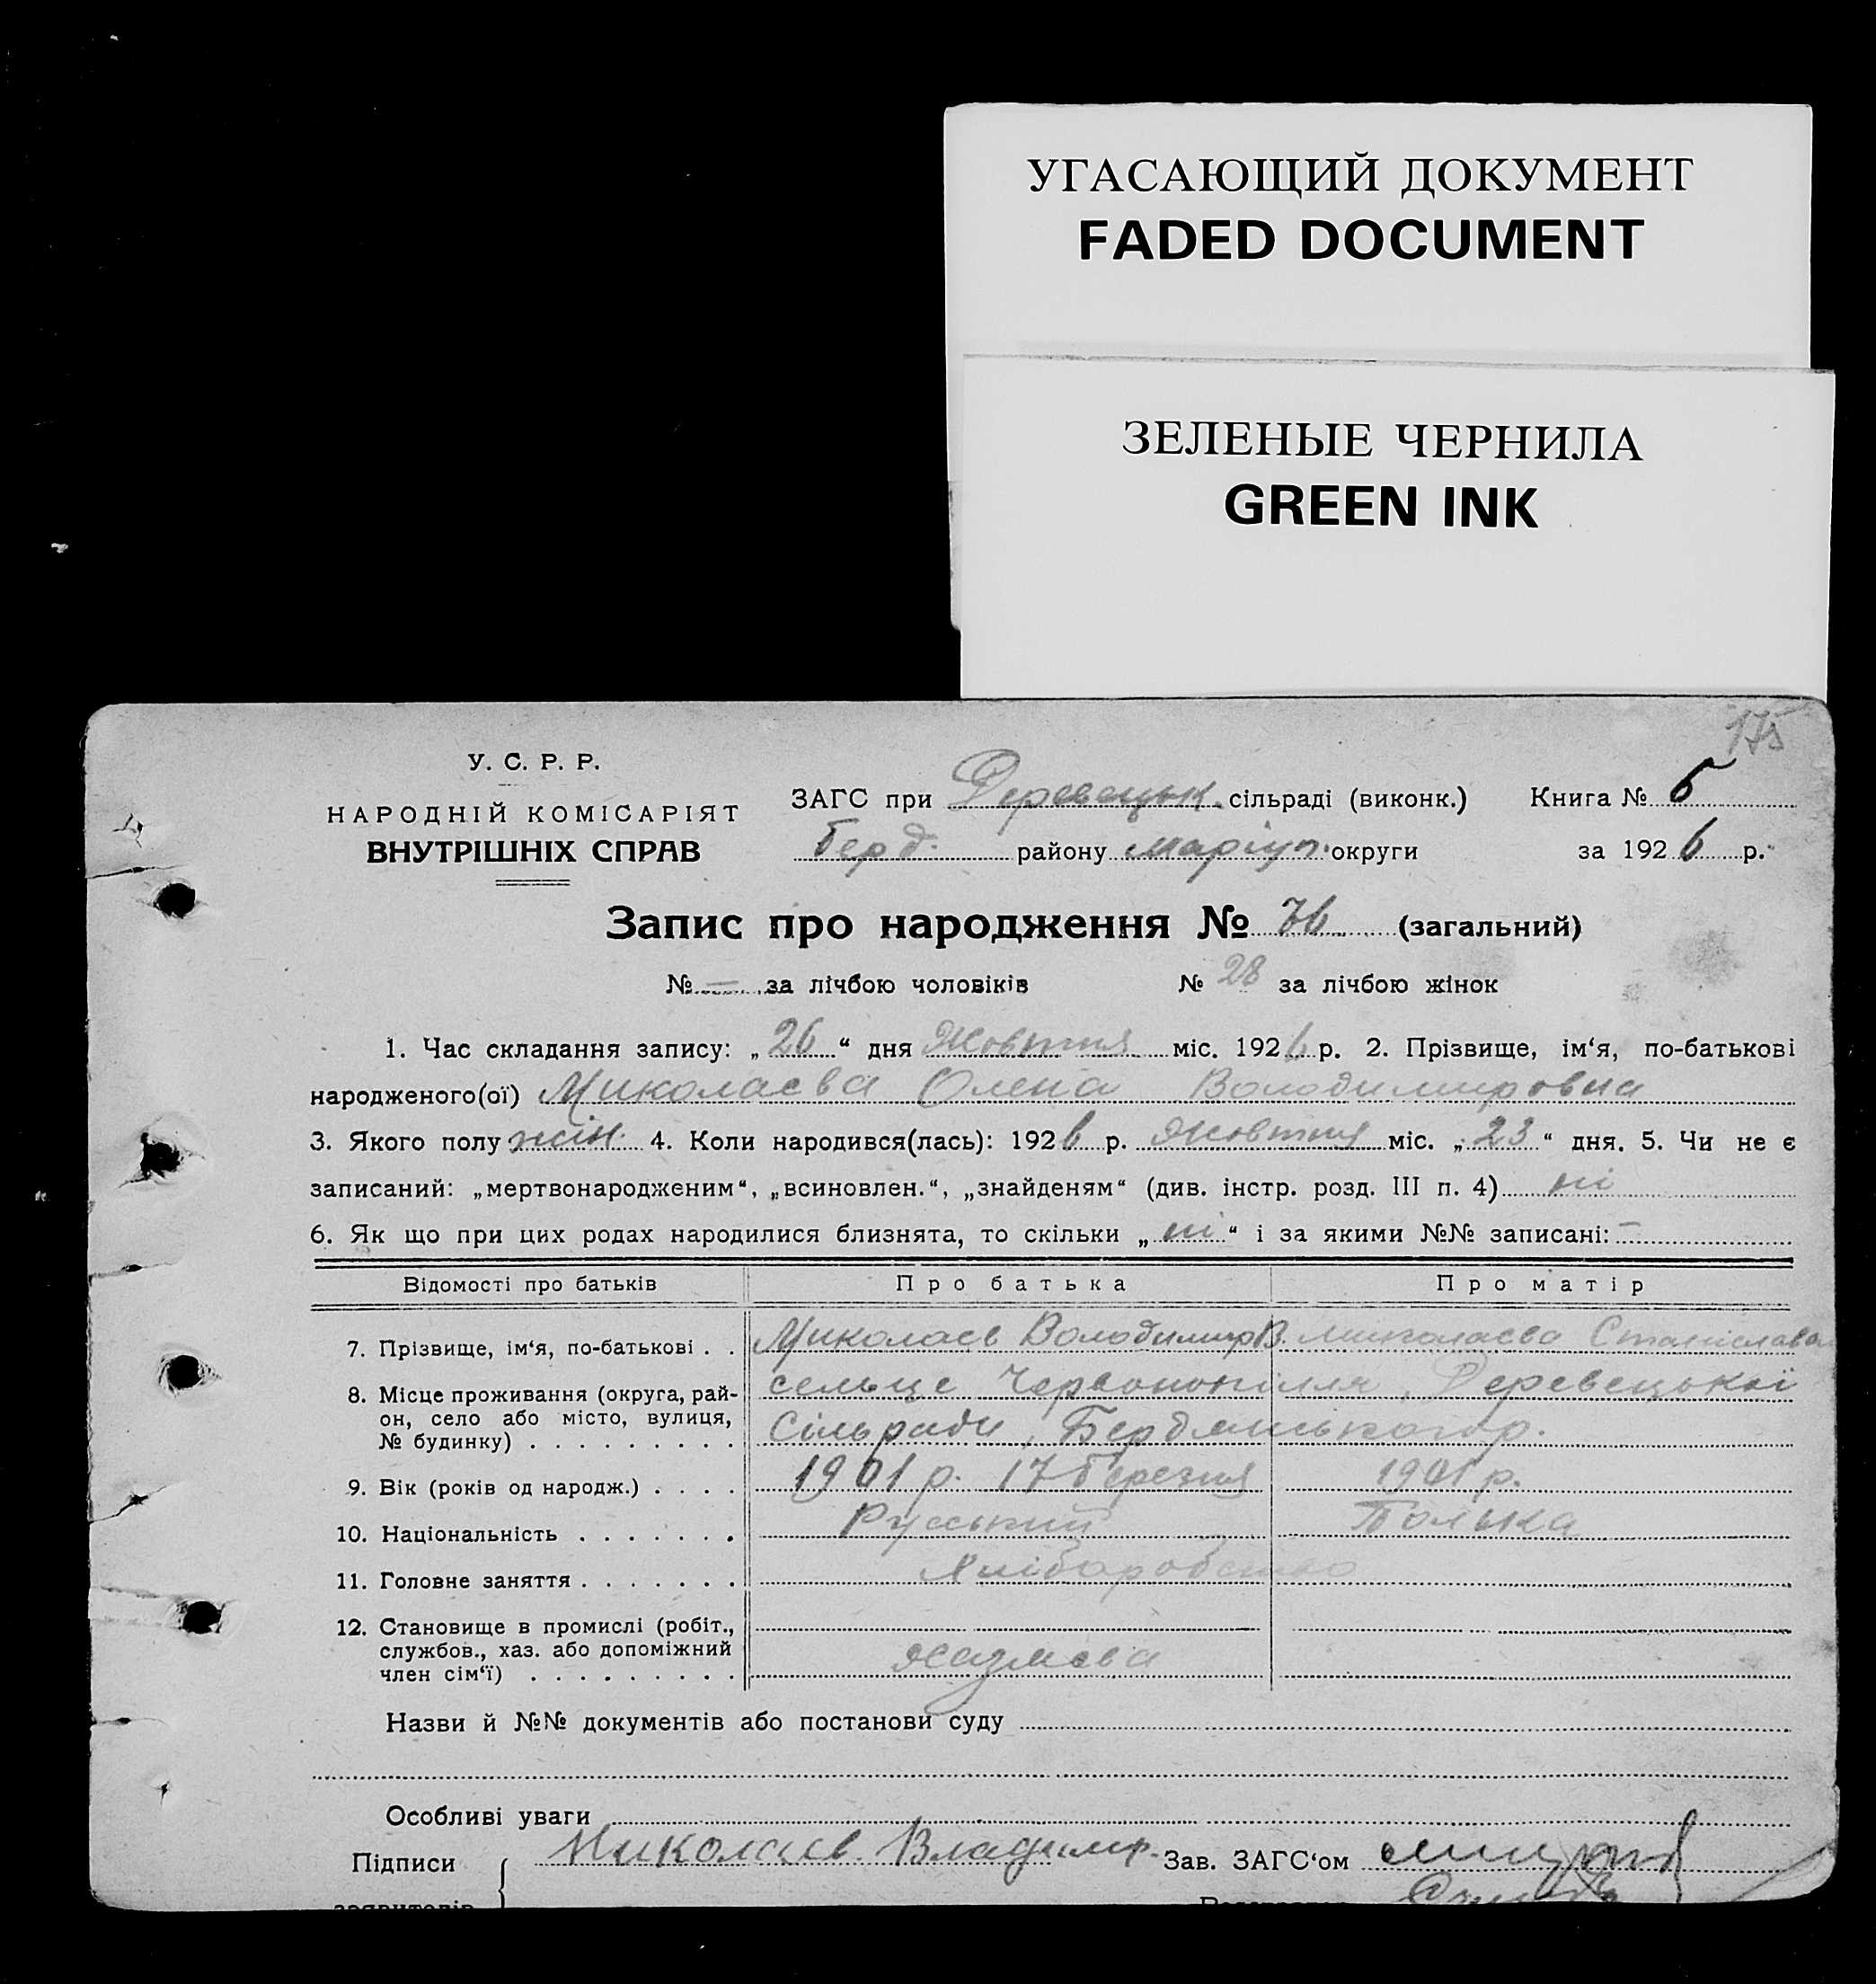 УГАСАЮЩИЙ ДОКУМЕНТ
FADED DOCUMENT
ЗЕЛЕНЫЕ ЧЕРНИЛА
GREEN INK
175
У. С. Р. Р.
НАРОДНІЙ КОМІСАРІЯТ
ВНУТРІШНІХ СПРАВ
ЗАГС при Деревецьк. сільраді (виконк.) Книга № 5
Берд. району маріуп. округи за 1926 р.
Запис про народження № 76 (загальний)
№ — за лічбою чоловіків № 28 за лічбою жінок
1. Час складання запису: „26“ дня Жовтня міс. 1926 р. 2. Прізвище, ім‘я, по-батькові
народженого(ої) Миколаєва Олена Володимировна
3. Якого полу жін. 4. Коли народився(лась): 1926 р. Жовтня міс. „23“ дня. 5. Чи не є
записаний: „мертвонародженим“, „всиновлен.“, „знайденям“ (див. інстр. розд. III п. 4) ні
6. Як що при цих родах народилися близнята, то скільки „ні“ і за якими №№ записані: —
Відомості про батьків Про батька Про матір
7. Прізвище, ім‘я, по-батькові . . Миколаєв Володимир В. Миколаєва Станіслава
8. Місце проживання (округа, рай-
он, село або місто, вулиця,
№ будинку) . . . . . . . . .
сельце Червонопілля, Деревецької
Сільради, Бердянського р.
9. Вік (років од народж.) . . . . 1901 р. 17 березня 1901 р.
10. Національність . . . . . . . Руський Полька
11. Головне заняття . . . . . . . Хліборобство
12. Становище в промислі (робіт.,
службов., хаз. або допоміжний
член сім‘ї) . . . . . . . . .
Назви й №№ документів або постанови суду
Особливі уваги
Підписи Николаев Владимир. Зав. ЗАГС‘ом